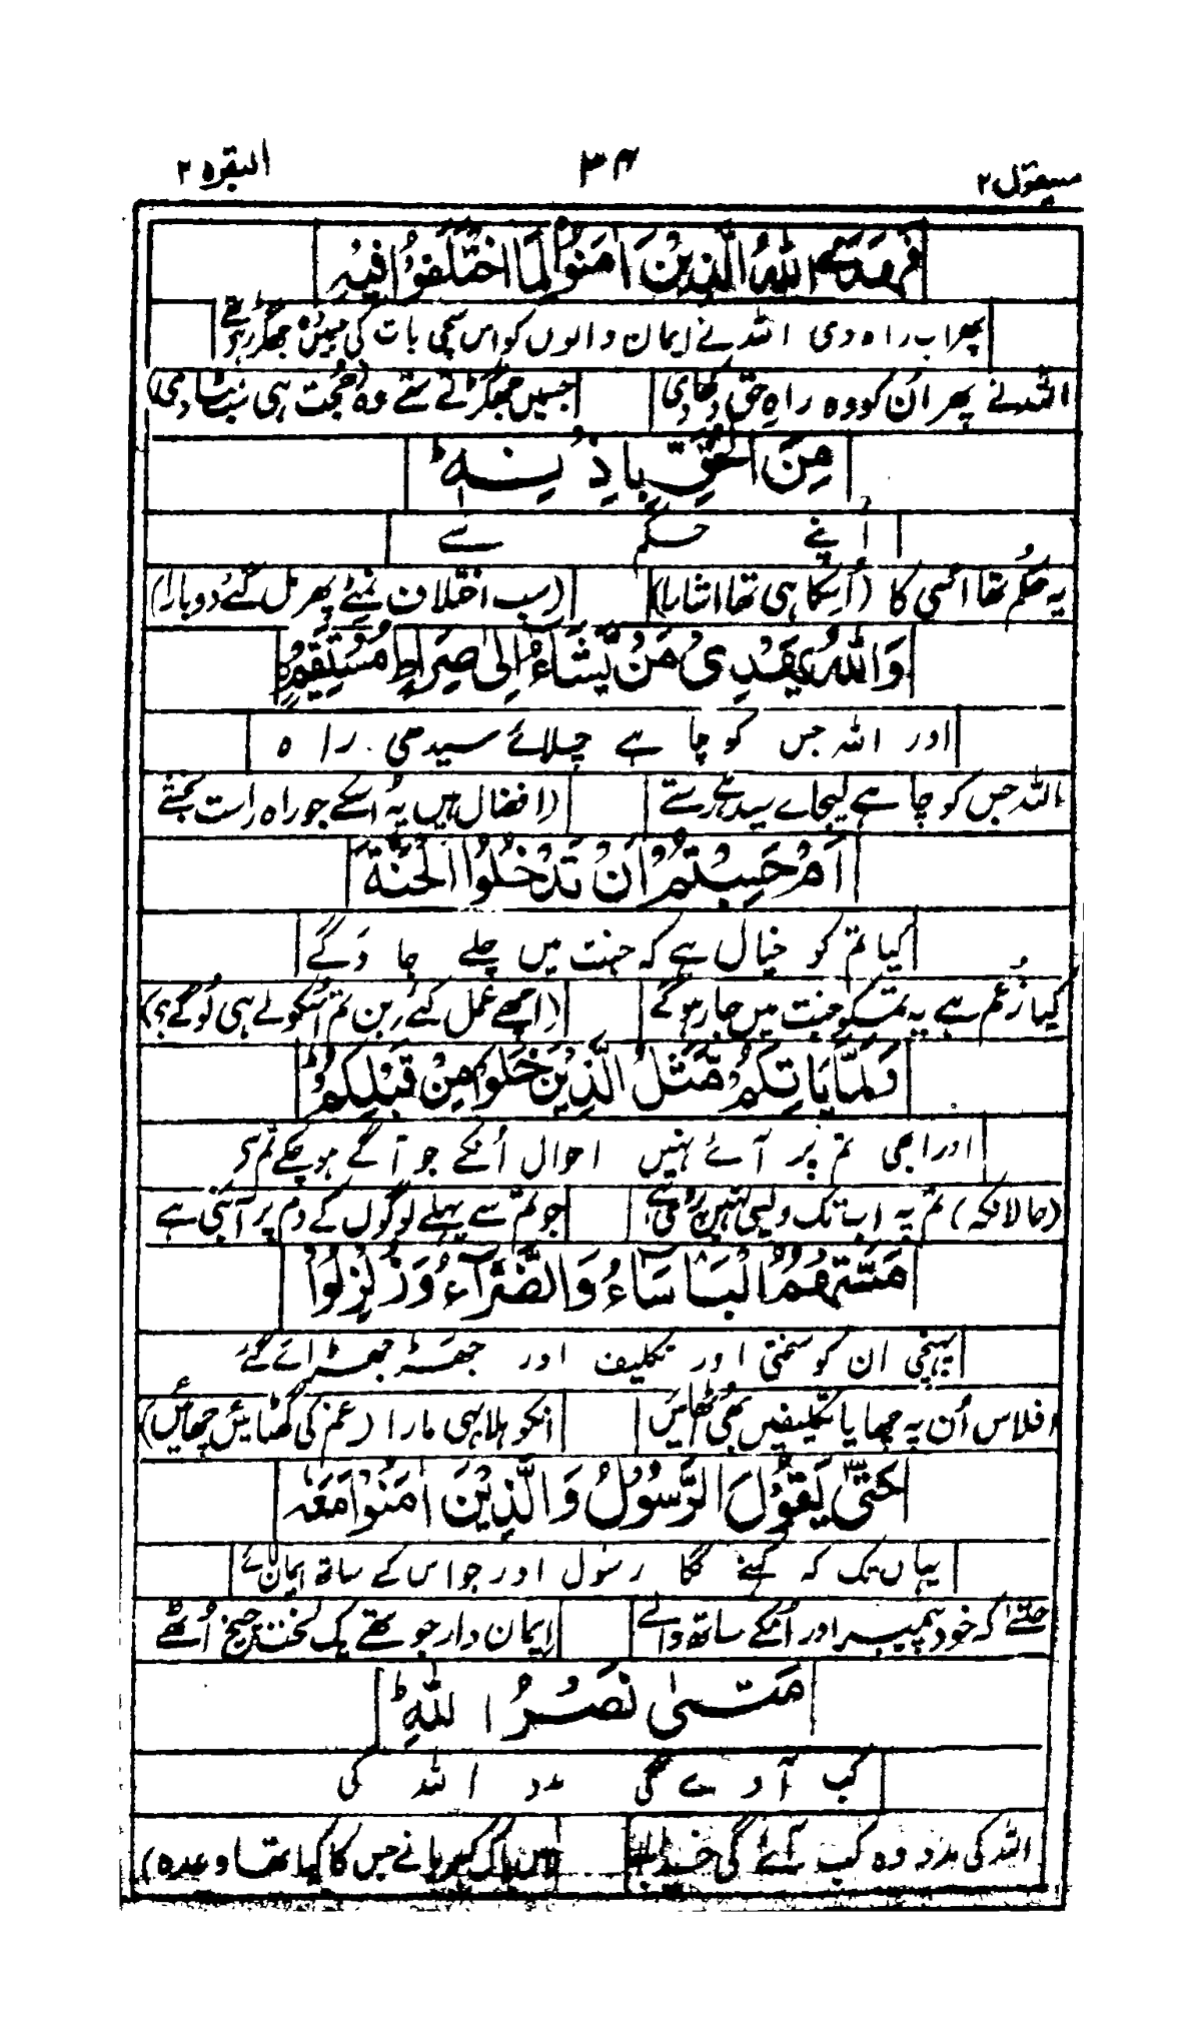 سیقول ۲ ۳۴ البقرہ ۲
فَهَدَى اللّٰهُ الَّذِيْنَ اٰمَنُوْا لِمَا اخْتَلَفُوْا فِيْهِ
پھر اب راہ دی اللہ نے ایمان والوں کو اس سچی بات کی جس میں جھگڑ رہے تھے
اللہ نے پھر اُن کو وہ راہِ حق دکھا دی جسمیں جھگڑتے تھے وہ (حجت ہی سب مٹا دی)
مِنَ الْحَقِّ بِاِذْنِهٖ ؕ
اپنے حکم سے
یہ حکم تھا اُسی کا (اُسکا ہی تھا اشارا) (سب اختلاف نمٹے پھر مل گئے دوبارا)
وَاللّٰهُ يَهْدِىْ مَنْ يَّشَآءُ اِلٰى صِرَاطٍ مُّسْتَقِيْمٍ
اور اللہ جس کو چا ہے چلائے سیدھی راہ
اللہ جس کو چا ہے لیجاے سیدھے رستے (افضال ہیں یہ اُسکے جو راہ راست
اَمْ حَسِبْتُمْ اَنْ تَدْخُلُوا الْجَنَّةَ
کیا تم کو خیال ہے کہ جنت میں چلے جا دَگے
کیا زُعم ہے یہ تمکو جنت میں جا رہو گے (اچھے عمل کئے بن تم اُسکو لے ہی لوگے؟)
وَلَمَّا يَاْتِكُمْ مَّثَلُ الَّذِيْنَ خَلَوْا مِنْ قَبْلِكُمْ ؕ
اور ابھی تم پر آئے نہیں احوال اُنکے جو آگے ہو چکے تم سے
(حالانکہ) تم پہ اب تک ویسی نہیں پڑی ہے جو تم سے پہلے لوگوں کے دم پر آبنی ہے
مَسَّتْهُمُ الْبَاْسَآءُ وَالضَّرَّآءُ وَزُلْزِلُوْا
پہنچی ان کو سختی اور تکلیف اور جھڑ جھڑائے گئے
افلاس اُن پہ چھایا تکلیفیں بھی اُٹھائیں انکو ہلا ہی مارا (غم کی گھٹائیں چھائیں)
حَتّٰى يَقُوْلَ الرَّسُوْلُ وَالَّذِيْنَ اٰمَنُوْا مَعَهٗ
یہاں تک کہ کہنے لگا رسول اور جو اس کے ساتھ ایمان لائے
حتّٰے کہ خود پیمبر اور اُنکے ساتھ والے ایمان دار جو تھے یک لخت چیخ اُٹھے
مَتٰى نَصْرُ اللّٰهِ ؕ
کب آوے گی مدد اللہ کی
اللہ کی مدد وہ کب آئے گی پاک کبریا نے جس کا کیا تھا وعدہ)